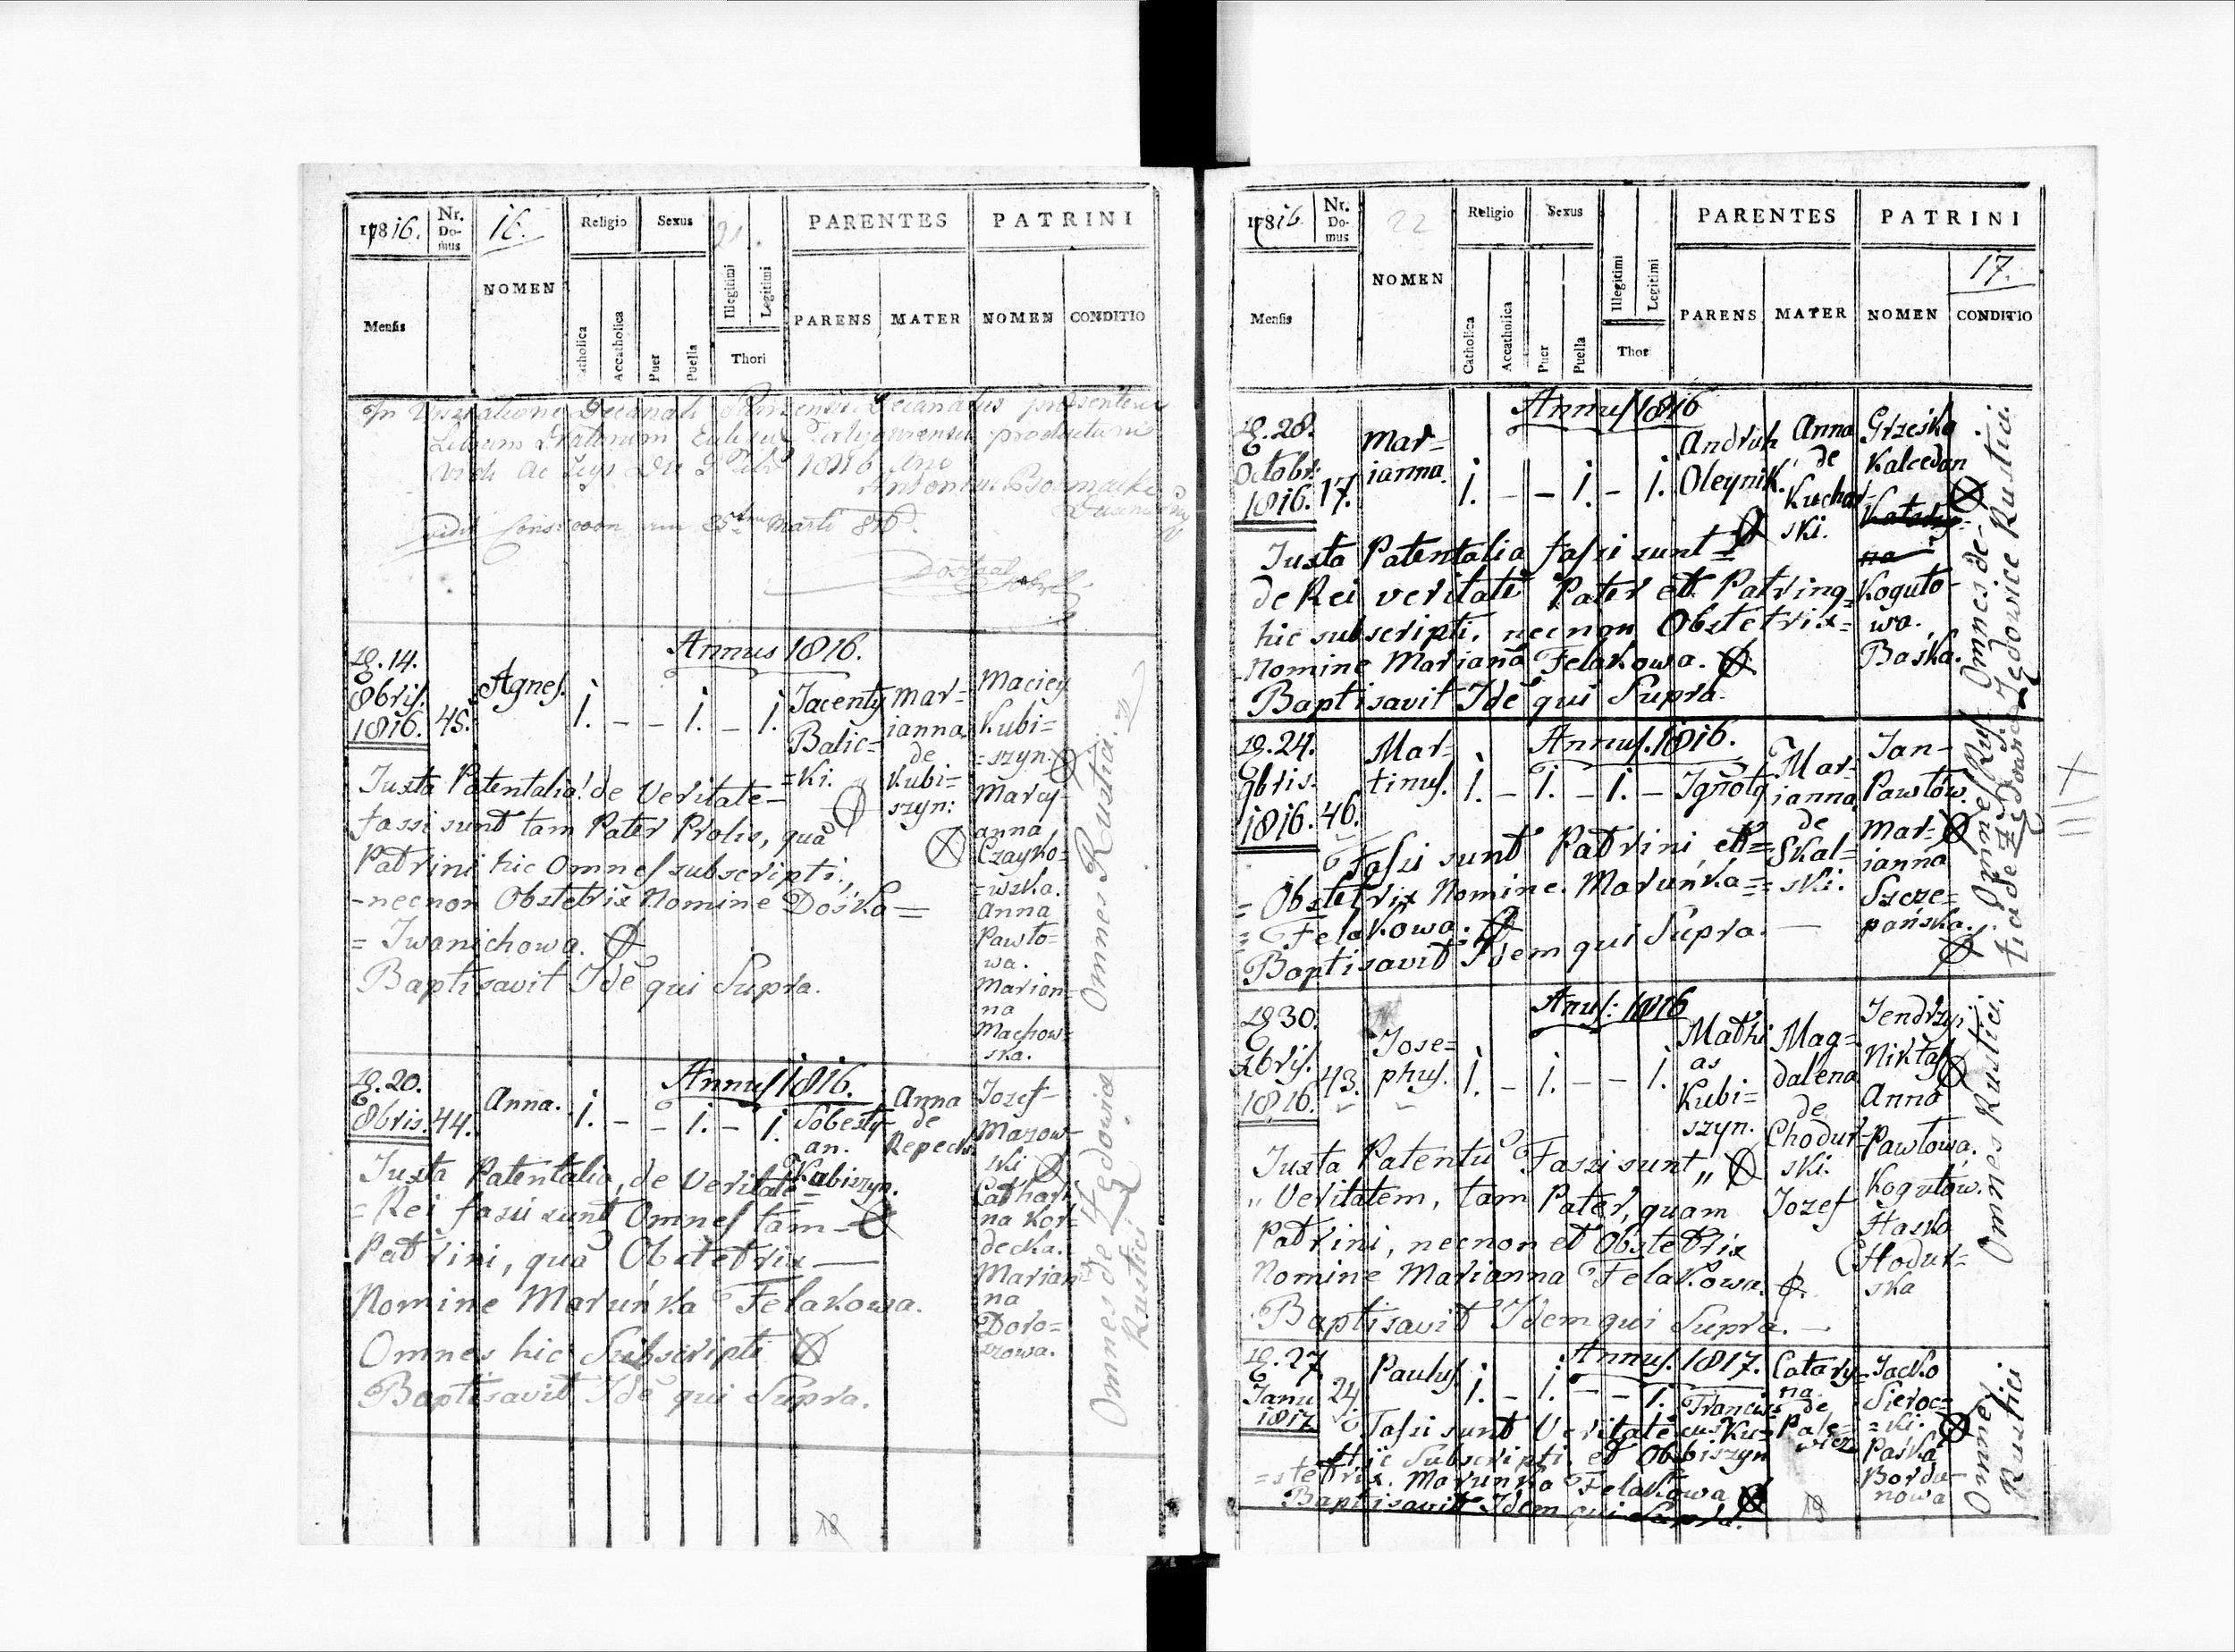 1816. Nr. Domus 16. Religio Sexus 21. PARENTES PATRINI
Mensis NOMEN Catholica Accatholica Puer Puella Illegitimi Legitimi Thori PARENS MATER NOMEN CONDITIO
Decanali Decanatus
Librum productum
Vidi 1816
Antonius
Martii 816.
Annus 1816.
D. 14. 8bris. 1816. 45. Agnes. 1. - - 1. - 1. Jacenty Balic= =ki. Marianna de Kubi= szyn:
Maciey
Kubi=
=szyn.
Mary-
anna
Czayko=
=wska.
Anna
Pawło=
wa.
Marian=
na
Machow=
ska.
Omnes Rustici.
Juxta Patentalia! de Veritate-
fassi sunt tam Pater Prolis, quā
Patrini hic Omnes subscripti,
-necnon Obstetrix Nomine Dośka=
= Iwanichowa.
Baptisavit Idē qui Supra.
Annus 1816.
D. 20. 8bris. 44. Anna. 1. - - 1. - 1. Sobesty- an. Kubiszyn. Anna de Repeck.
Jozef-
Mazow-
ski
Cathari
na Kor=
decka.
Marian
na
Doro=
zowa.
Omnes de Jedowice
Rustici
Juxta Patentalia, de Veritate=
=Rei fassi sunt Omnes tam-
Patrini, quā Obstetrix
Nomine Maruńka Felakowa.
Omnes hic Subscripti
Baptisavit Idē qui Supra.
18
1816. Nr. Domus 22 Religio Sexus PARENTES PATRINI
17.
Mensis NOMEN Catholica Accatholica Puer Puella Illegitimi Legitimi Thor PARENS MATER NOMEN CONDITIO
Annus 1816
D. 28. Octobr: 1816. 17. Mar= ianna. 1. - - 1. - 1. Andruh Oleynik. Anna de Kuchar- ski.
Grześko
Kalcedon
Katarzy=
na
Koguto-
wa.
Baśka.
Omnes de
Jedowice Rustici.
Juxta Patentalia fassi sunt=
de Rei veritate Pater et Patrinq=
hic subscripti, necnon Obstetrix=
Nomine Marianā Felakowa.
Baptisavit Idē qui Supra.
Annus. 1816.
D. 24. 9bris. 1816. 46. Mar- tinus. 1. - 1. - 1. - Ignotq Mar= ianna de Skal= =ski.
Jan-
Pawłów.
Mar-
ianna
Szcze=
pańska.
Omnes Rus
tici de
Fassi sunt Patrini et=
= Obstetrix Nomine Maruńka=
= Felakowa.
Baptisavit Idem qui Supra.
Anus: 1816
D 30. Xbris. 1816. 43. Jose= phus. 1. - 1. - - 1. Mathi as Kubi= szyn. Mag= dalena de Chodur- ski.
Jendrzyi
Nikłas
Anna
Pawłowa.
Jozef Kogutów.
Haska
Hodur=
ska
Omnes Rustici.
Juxta Patentū Fassi sunt "
" Veritatem, tam Pater, quam
Patrini, necnon et Obstetrix
Nomine Marianna Felakowa.
Baptisavit Idem qui Supra.
Annus. 1817.
D. 27. Janu 1817. 24 Paulus 1. - 1. - - 1. Francis cus Ku= biszyn Catary= na de Pale=
Jacko
Sieroc=
=ki.
Paśka
Bordu-
nowa
Omnes
Rustici
Fassi sunt Veritatē
Hic Subscripti et Ob=
=stetrix. Marunka Felakowa
Baptisavit Idem qui Supra.
18